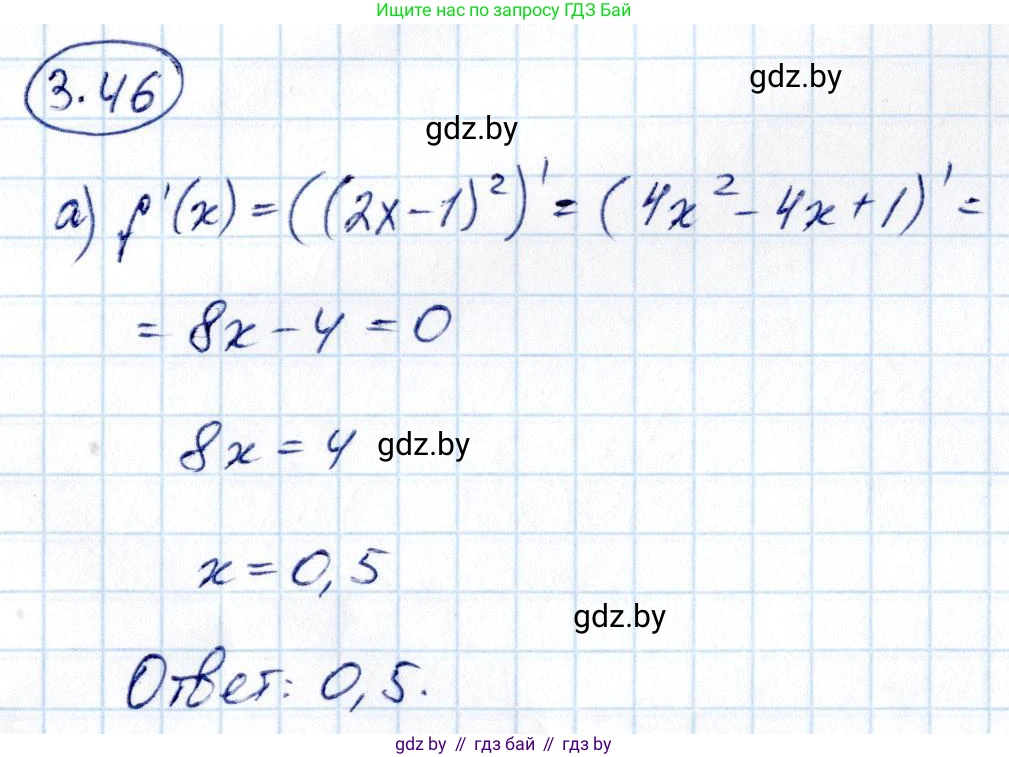 Ищите нас по запросу ГДЗ Бай
3.46
gdz.by
gdz.by
а) f'(x) = ((2x-1)²)' = (4x² - 4x + 1)' =
= 8x - 4 = 0
8x = 4
gdz.by
x = 0,5
gdz.by
Ответ: 0,5.
gdz by // гдз бай // gdz by